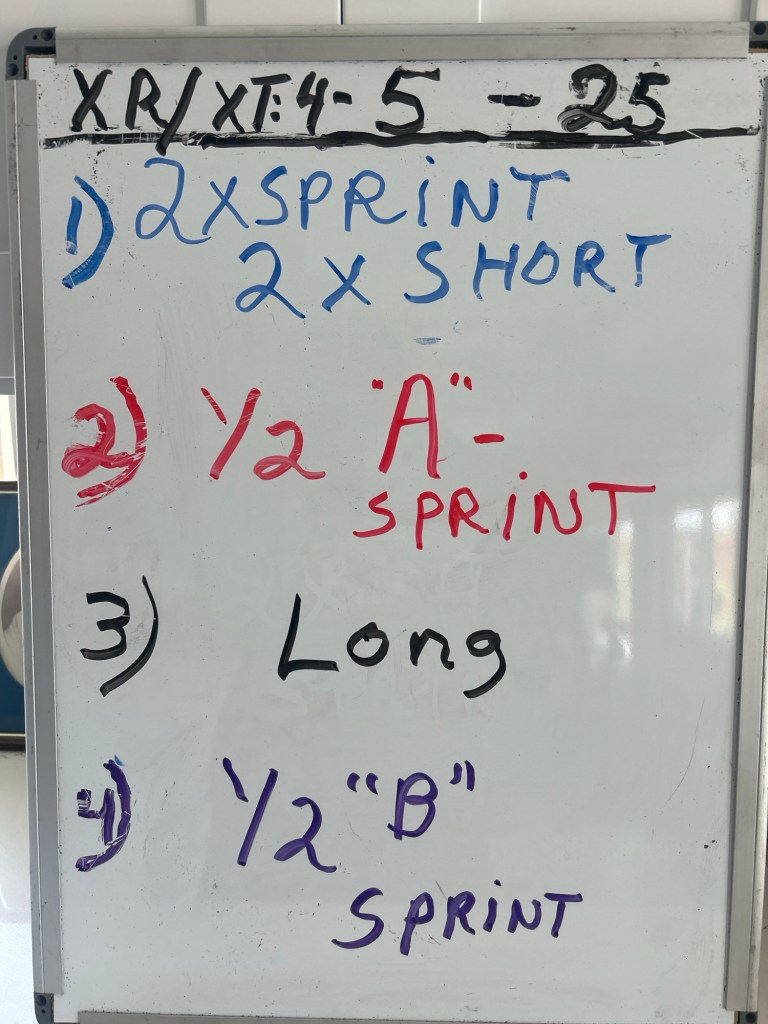 XR/XT: 4-5-25
1) 2XSPRiNT
2X SHORT
2) 1/2 "A"-
SPRiNT
3) Long
4) 1/2 "B"
SPRiNT